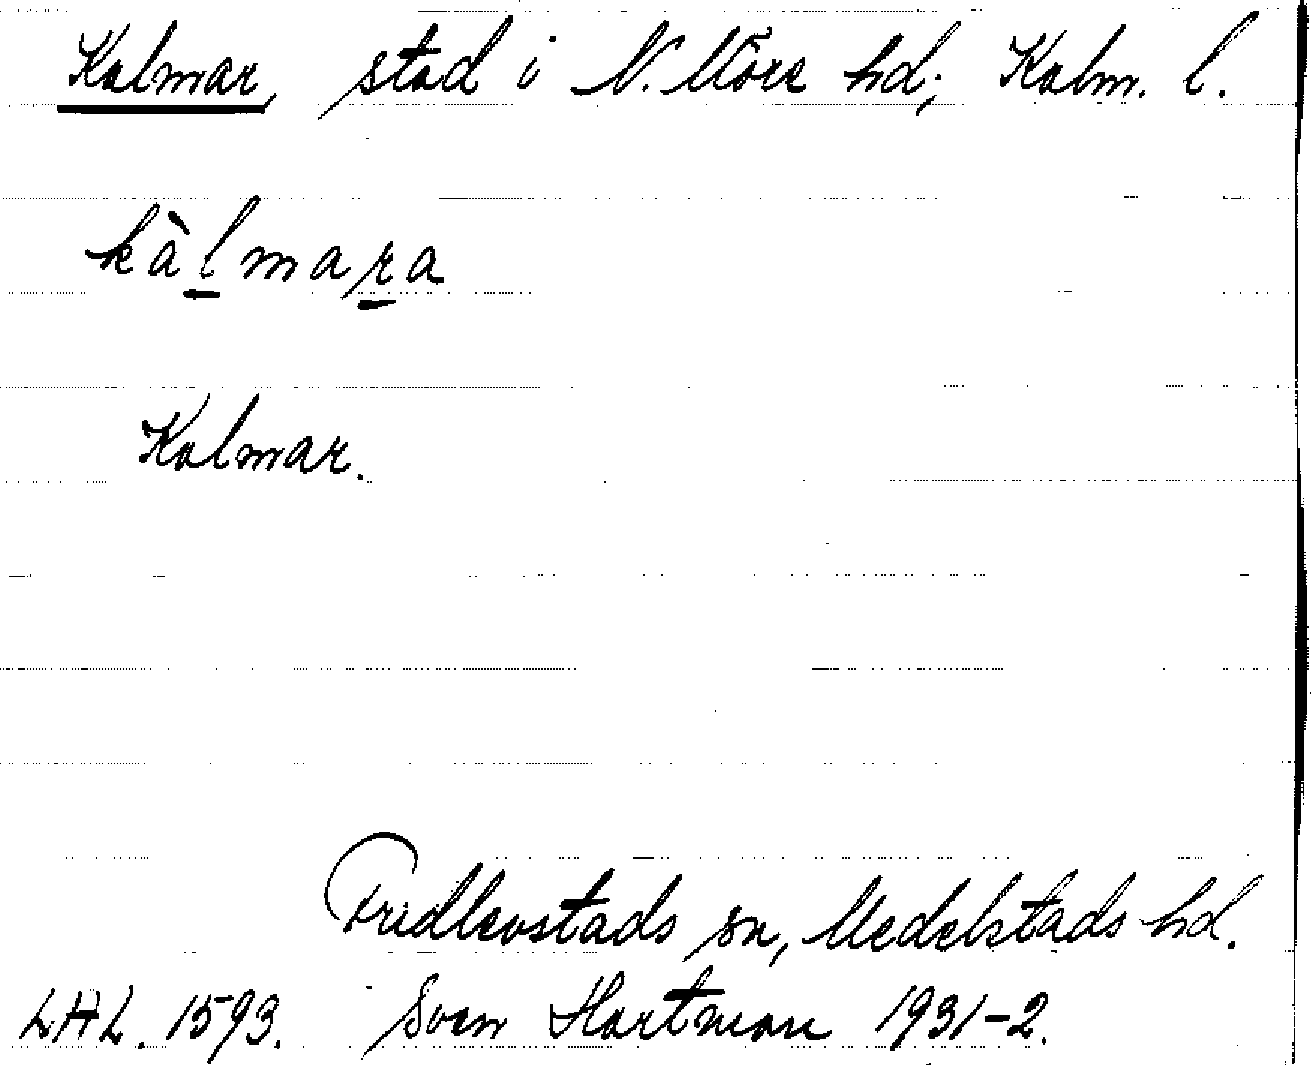 Kalmar, stad i N. Möre hd; Kalm. l.
kàlmara
Kalmar.
Fridlevstads sn, Medelstads hd.
LHL. 1593. Sven Hartman 1931-2.